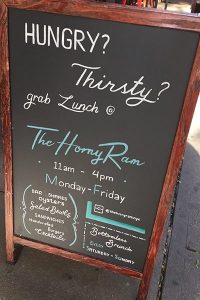 HUNGRY?
Thirsty?
grab Lunch @
The Horny Ram
11am - 4pm
Monday - Friday
BAR SNACKS
OYSTERS
Salad Bowls
SANDWICHES
Burgers
Cocktails
@thehornyramnyc
Bottomless
Brunch
EVERY
SATURDAY + SUNDAY